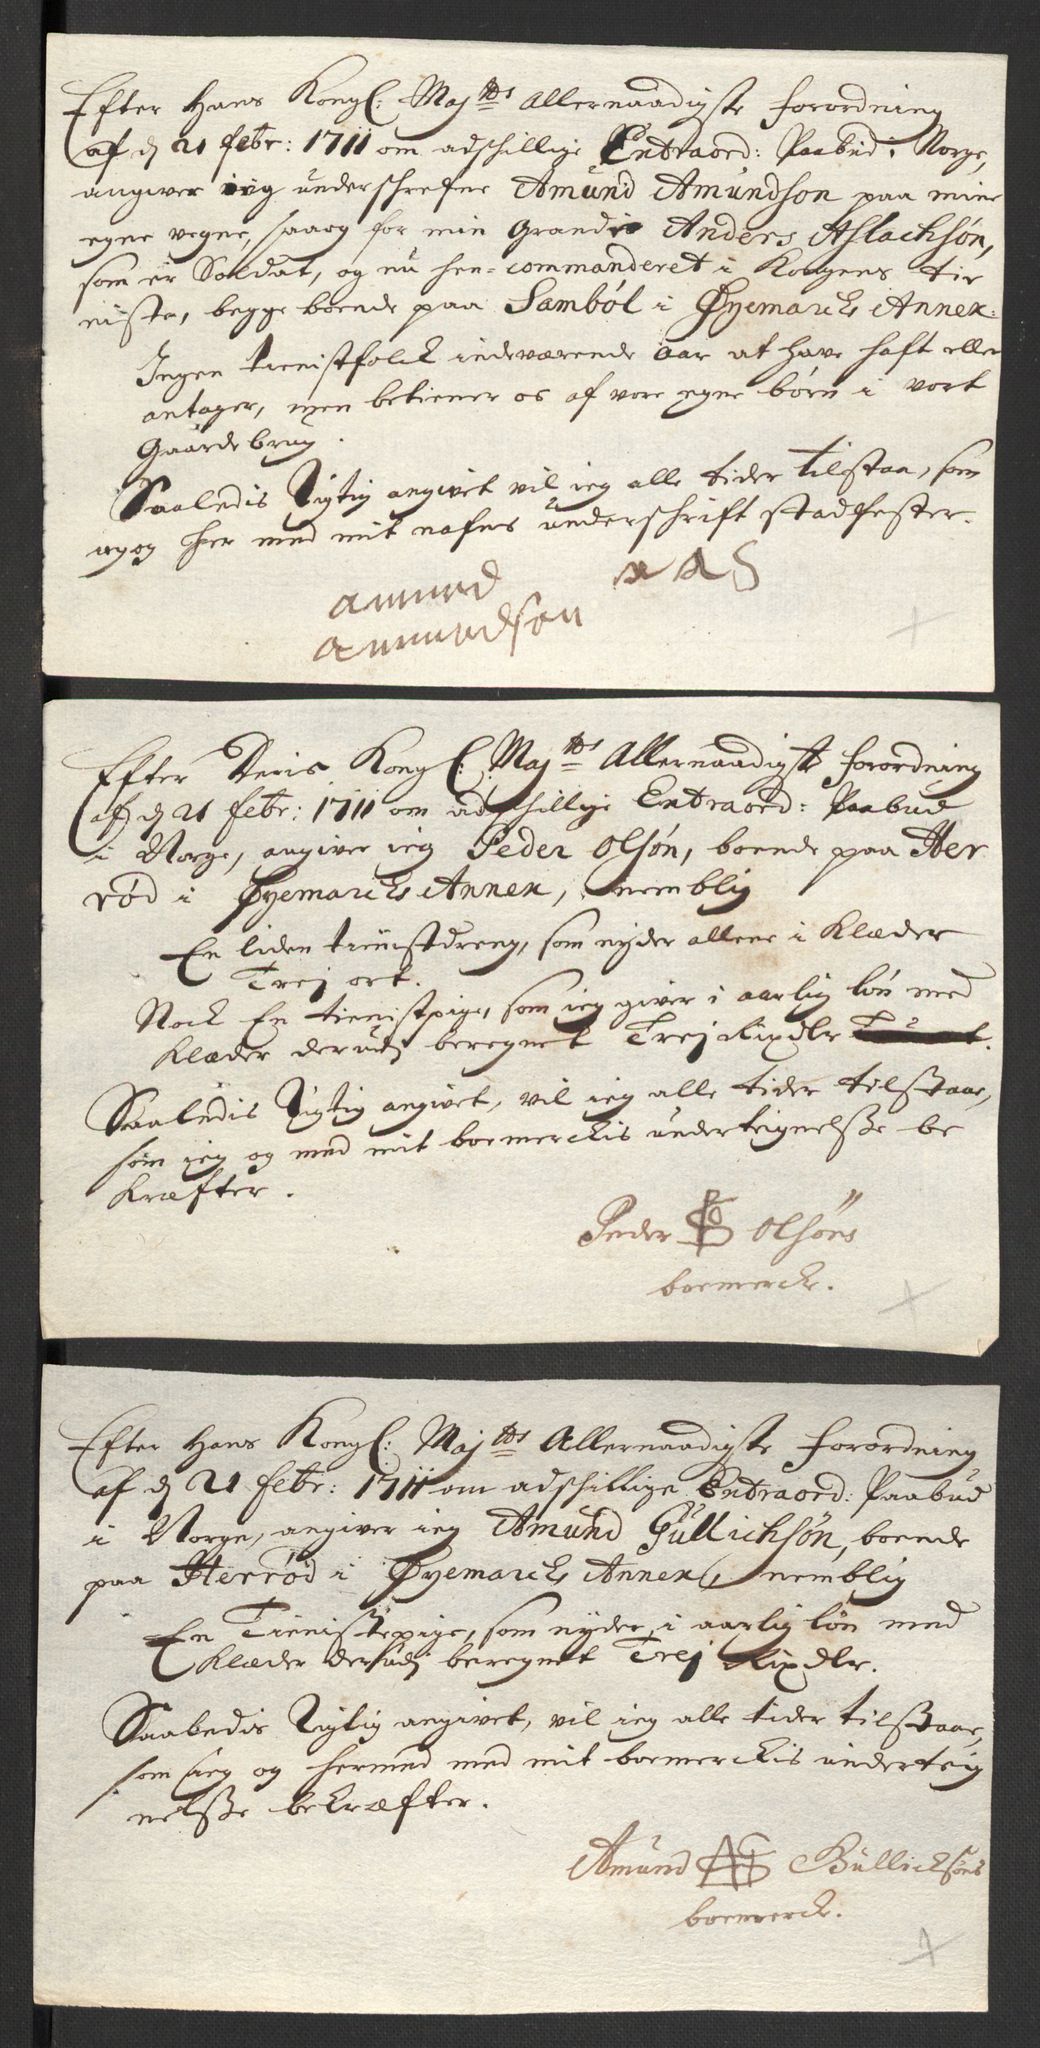 Efter Hans Kongl: Maj:tds Allernaadigste forordning
af d 21 febr: 1711 om adschillige Extraord: Paabud i Norge,
angiver ieg underschrefne Amund Amundson paa mine
egne vegne, saaog for min Grande Anders Aslachsøn,
som er Soldat, og nu hen-commanderet i Kongens tie
niste, begge boende paa Sambøl i Øyemarcks Annex:
Ingen tienistfolck indeværende aar at have haft eller
antager, men betiener os af vore egne børn i vort
Gaardebrug.
Saaledis Rigtig angivet vil ieg alle tider tilstaa, som
ieg og her med mit nafns underschrift stadfester.
amund A A S
amundson
Efter Deris Kongl: Maj:tds Allernaadigste forordning
af d 21 febr: 1711 om adschillige Extraord: Paabud
i Norge, angiver ieg Peder Olsøn, boende paa Her
rød i Øyemarcks Annex, nemblig
En liden tienistdreng, som nyder allene i Klæder
Trej ort.
Nock En tienistpige, som ieg giver i aarlig løn med
Klæder derudj beregnet Trej Rixdlr
Saaledis Rigtig angivet, vil ieg alle tider tilstaae,
som jeg og med mit boemerckis underteignelsse be
kræfter.
Peder Olsøns
boemerck.
Efter Hans Kongl: Maj:tds Allernaadigste forordning
af d 21 febr: 1711 om adschillige Extraord: Paabud
i Norge, angiver ieg Amund Gullichsøn, boende
paa Herrød i Øyemarcks Annex, nemblig
En Tienistepige, som nyder i aarlig løn med
Klæder derudj beregnet Trej Rixdlr.
Saaledis Rigtig angivet, vil ieg alle tider tilstaae,
som jeg og hermed med mit boemerckis underteig
nelsse bekræfter.
Amund Gullicksøns
boemerck.